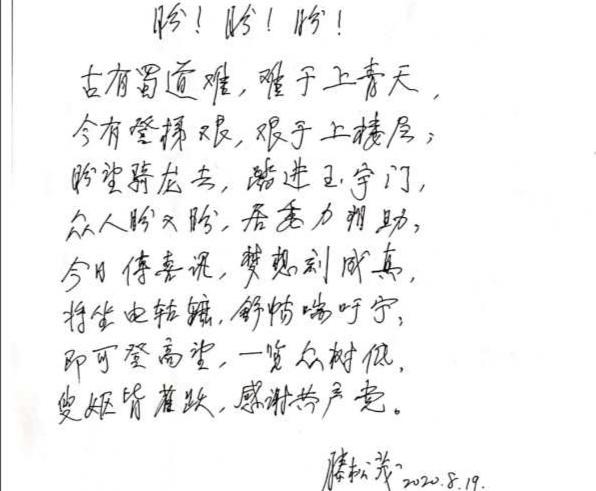 盼！盼！盼！
古有蜀道难，难于上青天，
今有登梯艰，艰于上楼层；
盼望骑龙去，踏进玉宇门，
众人盼又盼，居委力相助，
今日传喜讯，梦想刻成真，
将坐电轱辘，舒畅喘吁宁，
即可登高望，一览众树低，
叟妪皆雀跃，感谢共产党。
滕松茂 2020.8.19.